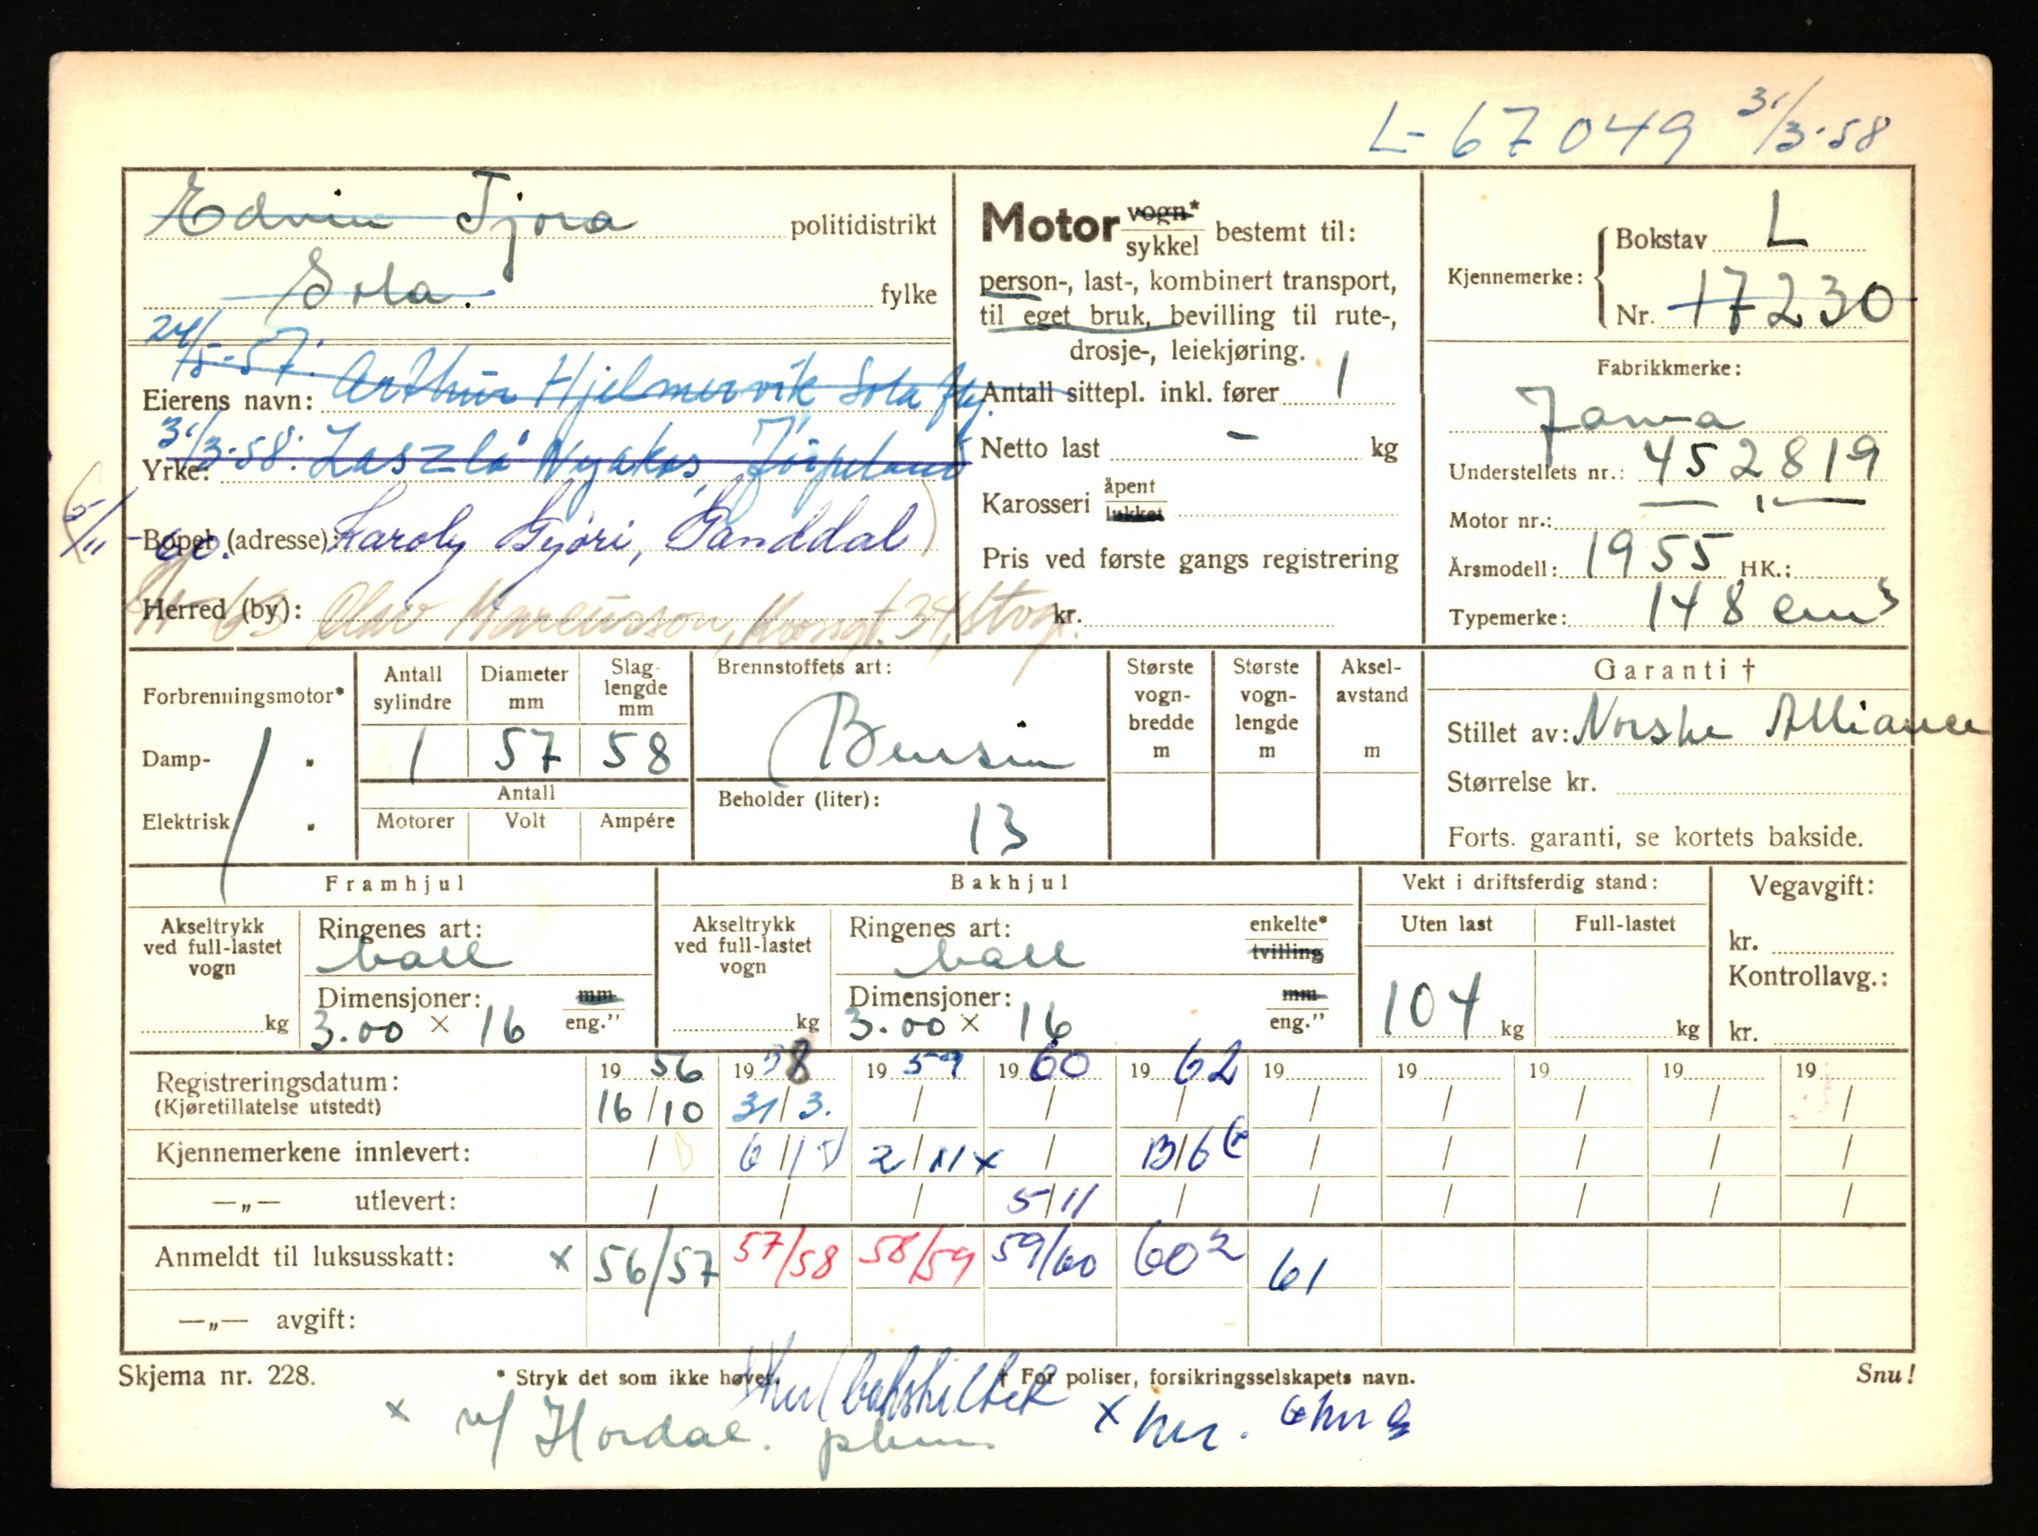 L-67049 31/3-58
Edvin Tjora politidistrikt
Sola. fylke
24/5-57.
Eierens navn: Arthur Hjelmervik Sola fly.
31/3-58:
Yrke: Laszló Nyakas Jörpeland
5/11-60.
Bopel (adresse): Karoly Györi, Ganddal
Herred (by): 63 Olav Marcusson, Kongsgt. 34, Stvgr.
Motor vogn*
sykkel bestemt til:
person-, last-, kombinert transport,
til eget bruk, bevilling til rute-,
drosje-, leiekjøring.
Antall sittepl. inkl. fører 1
Netto last - kg
Karosseri åpent
lukket
Pris ved første gangs registrering
kr.
Kjennemerke: Bokstav L
Nr. 17230
Fabrikkmerke:
Jawa
Understellets nr.: 452819
Motor nr.: — " —
Årsmodell: 1955 HK.:
Typemerke: 148 cm3
Forbrenningsmotor*
Damp- "
Elektrisk "
Antall sylindre Diameter mm Slaglengde mm
1 57 58
Antall
Motorer Volt Ampére
Brennstoffets art:
Bensin
Beholder (liter):
13
Største vogn-bredde m
Største vogn-lengde m
Aksel-avstand m
Garanti †
Stillet av: Norske Alliance
Størrelse kr.
Forts. garanti, se kortets bakside.
Framhjul
Akseltrykk ved full-lastet vogn
kg
Ringenes art:
ball
Dimensjoner: mm
3.00 × 16 eng."
Bakhjul
Akseltrykk ved full-lastet vogn
kg
Ringenes art: enkelte*
ball tvilling
Dimensjoner: mm
3.00 × 16 eng."
Vekt i driftsferdig stand:
Uten last Full-lastet
104 kg kg
Vegavgift:
kr.
Kontrollavg.:
kr.
Registreringsdatum: 1956 1958 1959 1960 1962 19 19 19 19 19
(Kjøretillatelse utstedt) 16/10 31/3. / / / / / / / /
Kjennemerkene innlevert: / 6/ 2/11 x / 13/6 / / / / /
—„— utlevert: / / / 5/11 / / / / / /
Anmeldt til luksusskatt: x 56/57 57/58 58/59 59/60 60² 61
—„— avgift:
Skjema nr. 228. * Stryk det som ikke høver. † For poliser, forsikringsselskapets navn. Snu!
x v/ Hordal. x